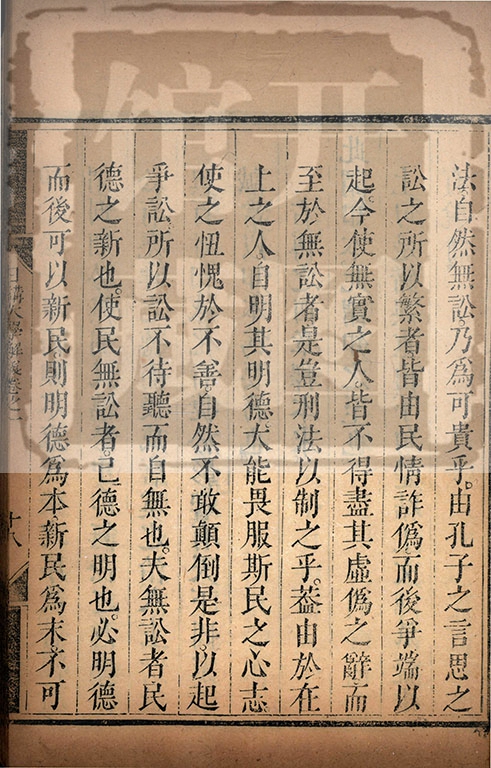 法。自然無訟乃爲可貴乎。由孔子之言思之
訟之所以繁者皆由民情詐僞。而後爭端以
起。今使無實之人。皆不得盡其虛僞之辭而
至於無訟者是豈刑法以制之乎。葢由於在
上之人。自明其明德大能畏服斯民之心志
使之忸愧於不善自然不敢顛倒是非。以起
爭訟。所以訟不待聽而自無也。夫無訟者民
德之新也。使民無訟者。己德之明也。必明德
而後可以新民。則明德爲本新民爲末。不可
日講大學解義卷之一
十八